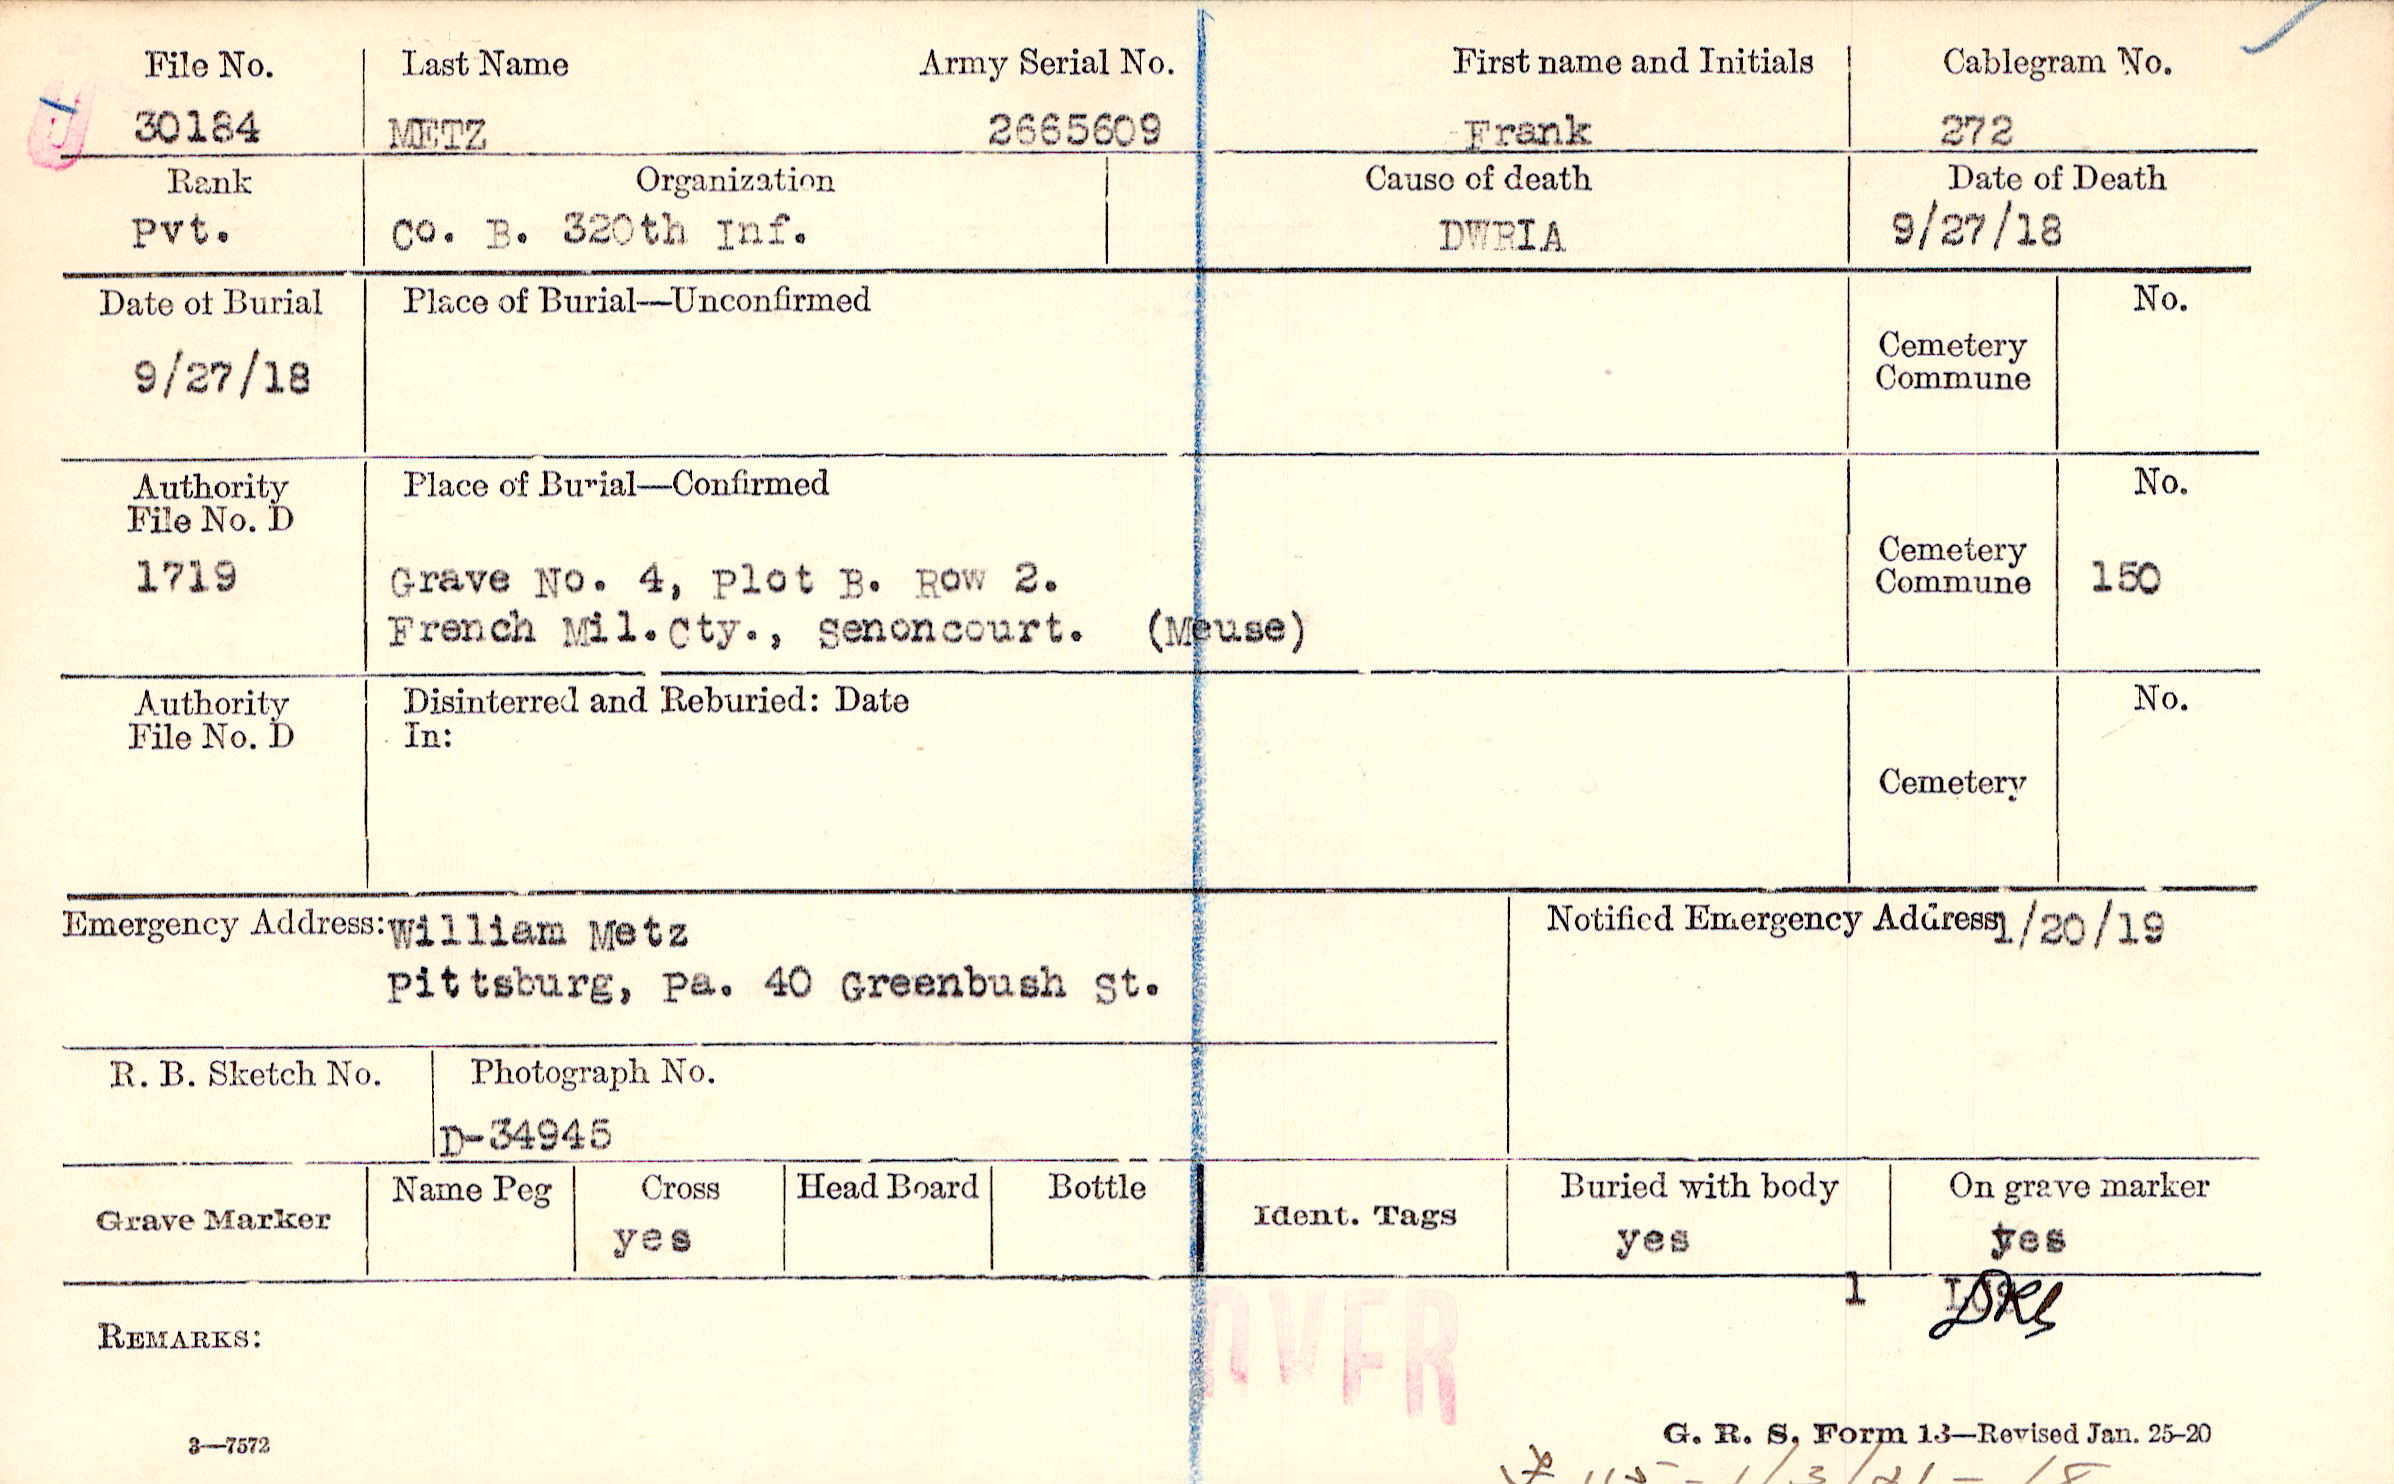 File No. Last Name Army Serial No. First name and Initials Cablegram No.
30184 METZ 2665609 Frank 272
Rank Organization Cause of death Date of Death
Pvt. Co. B. 320th Inf. DWRIA 9/27/18
Date of Burial Place of Burial—Unconfirmed No.
9/27/18 Cemetery
Commune
Authority Place of Burial—Confirmed No.
File No. D
1719 Grave No. 4, Plot B. Row 2. Cemetery
Commune 150
French Mil.Cty., Senoncourt. (Meuse)
Authority Disinterred and Reburied: Date No.
File No. D In:
Cemetery
Emergency Address: William Metz Notified Emergency Address 1/20/19
Pittsburg, Pa. 40 Greenbush St.
R. B. Sketch No. Photograph No.
D-34945
Grave Marker Name Peg Cross Head Board Bottle Ident. Tags Buried with body On grave marker
yes yes yes
1
REMARKS:
OVER
3—7572 G. R. S. Form 13—Revised Jan. 25-20